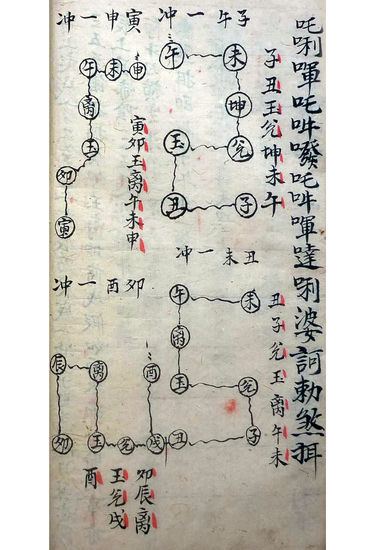 吒唎喗吒吽㗶吒吽喗噠唎婆訶勅煞
子午一冲
子丑玉兊坤未午
未 午
坤
兊 玉
子 丑
丑未一冲
丑子兊玉离午未
未 午
离
兊 玉
子 丑
寅申一冲
寅卯玉离午未申
申 未 午
离
玉
卯
寅
卯酉一冲
酉 离 辰
戌 兊 玉 卯
卯辰离
玉兊戌
酉